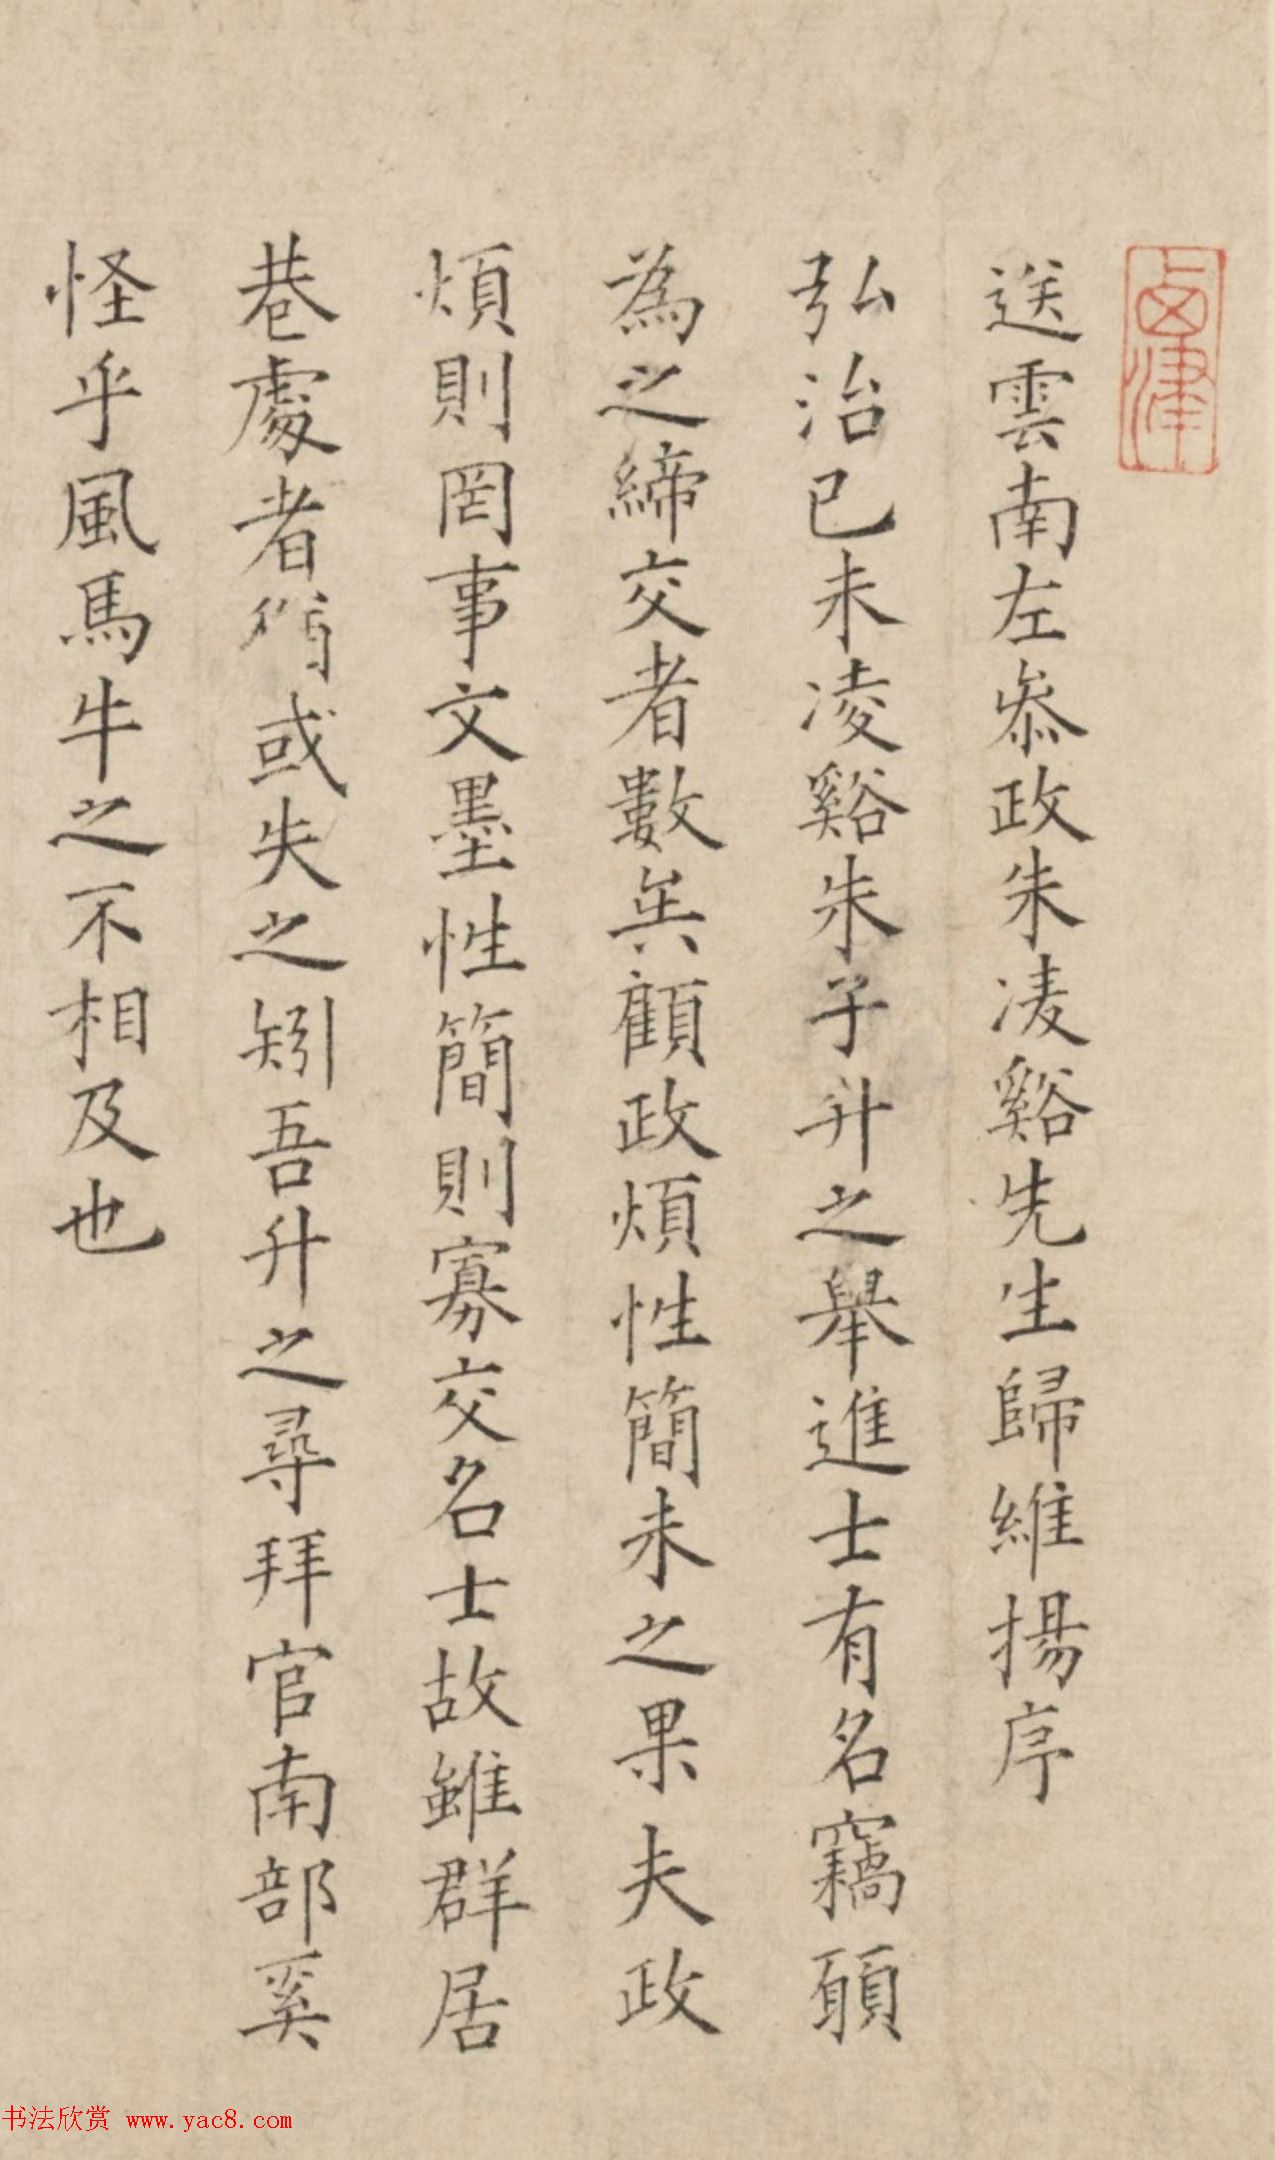 卣津
送雲南左叅政朱凌谿先生歸維揚序
弘治己未凌谿朱子升之舉進士有名竊願
為之締交者數矣顧政煩性簡未之果夫政
煩則罔事文墨性簡則寡交名士故雖群居
巷處者猶或失之矧吾升之尋拜官南部奚
怪乎風馬牛之不相及也
书法欣赏 www.yac8.com